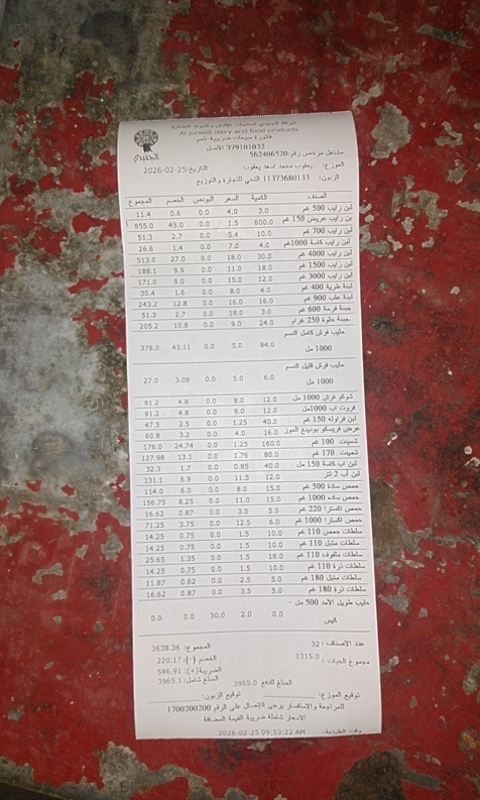 شركة الجنيدي لمنتجات الألبان والمواد الغذائية
Al Juneidi dairy and food products
فاتورة مبيعات ضريبية-نسخ
379101032 الأصل
الجنيدي
مشتغل مرخص رقم: 562406520
الموزع: يعقوب محمد اسعد يعقوب التاريخ: 2026-02-25
الزبون: 11373680133 الشني للتجارة والتوزيع
الصنف الكمية السعر البونص الخصم المجموع
لبن رايب 500 غم 3.0 4.0 0.0 0.6 11.4
بن رايب عريض 150 غم 600.0 1.5 0.0 45.0 855.0
لبن رايب 700 غم 10.0 5.4 0.0 2.7 51.3
لبن رايب كاسة 1000غم 4.0 7.0 0.0 1.4 26.6
لبن رايب 4000 غم 30.0 18.0 0.0 27.0 513.0
لبن رايب 1500 غم 18.0 11.0 0.0 9.9 188.1
لبن رايب 3000 غم 12.0 15.0 0.0 9.0 171.0
لبنة طرية 400 غم 4.0 8.0 0.0 1.6 30.4
لبنة علب 900 غم 16.0 16.0 0.0 12.8 243.2
جبنة فرحة 600 غم 3.0 18.0 0.0 2.7 51.3
جبنة حلوة 250 غرام. 24.0 9.0 0.0 10.8 205.2
حليب فرش كامل الدسم
1000 مل 84.0 5.0 0.0 43.11 378.0
حليب فرش قليل الدسم
1000 مل 6.0 5.0 0.0 3.08 27.0
شوكو فرش 1000 مل 12.0 8.0 0.0 4.8 91.2
فروت اب 1000مل 12.0 8.0 0.0 4.8 91.2
لبن فراولة 150 غم 40.0 1.25 0.0 2.5 47.5
عرض فريسكو بودينغ الموز 16.0 4.0 0.0 3.2 60.8
شمينت 100 غم 160.0 1.25 0.0 24.74 176.0
شمينت 170 غم 80.0 1.76 0.0 13.1 127.98
لبن اب كاسة 150 مل 40.0 0.85 0.0 1.7 32.3
لبن أب 2 لتر 12.0 11.5 0.0 6.9 131.1
حمص سادة 500 غم 15.0 8.0 0.0 6.0 114.0
حمص ساده 1000 غم 15.0 11.0 0.0 8.25 156.75
حمص اكسترا 220 غم 5.0 3.5 0.0 0.87 16.62
حمص اكسترا 1000 غم 6.0 12.5 0.0 3.75 71.25
سلطات حمص 110 غم 10.0 1.5 0.0 0.75 14.25
سلطات متبل 110 غم 10.0 1.5 0.0 0.75 14.25
سلطات ملفوف 110 غم 18.0 1.5 0.0 1.35 25.65
سلطات ذرة 110 غم 10.0 1.5 0.0 0.75 14.25
سلطات متبل 180 غم 5.0 2.5 0.0 0.62 11.87
سلطات ذرة 180 غم 5.0 3.5 0.0 0.87 16.62
حليب طويل الأمد 500 مل -
كيس 0.0 2.0 30.0 0.0 0.0
عدد الاصناف: 32 المجموع: 3638.36
مجموع الحبات: 1315.0 الخصم (-): 220.17
الضريبة(+): 546.91
المبلغ للدفع 3965.0 المبلغ شامل: 3965.1
توقيع الموزع: توقيع الزبون:
للمراجعة والاستفسار يرجى الإتصال على الرقم 1700200200
الاسعار شاملة ضريبة القيمة المضافة
وقت الطباعة: 2026-02-25 09:53:22 AM